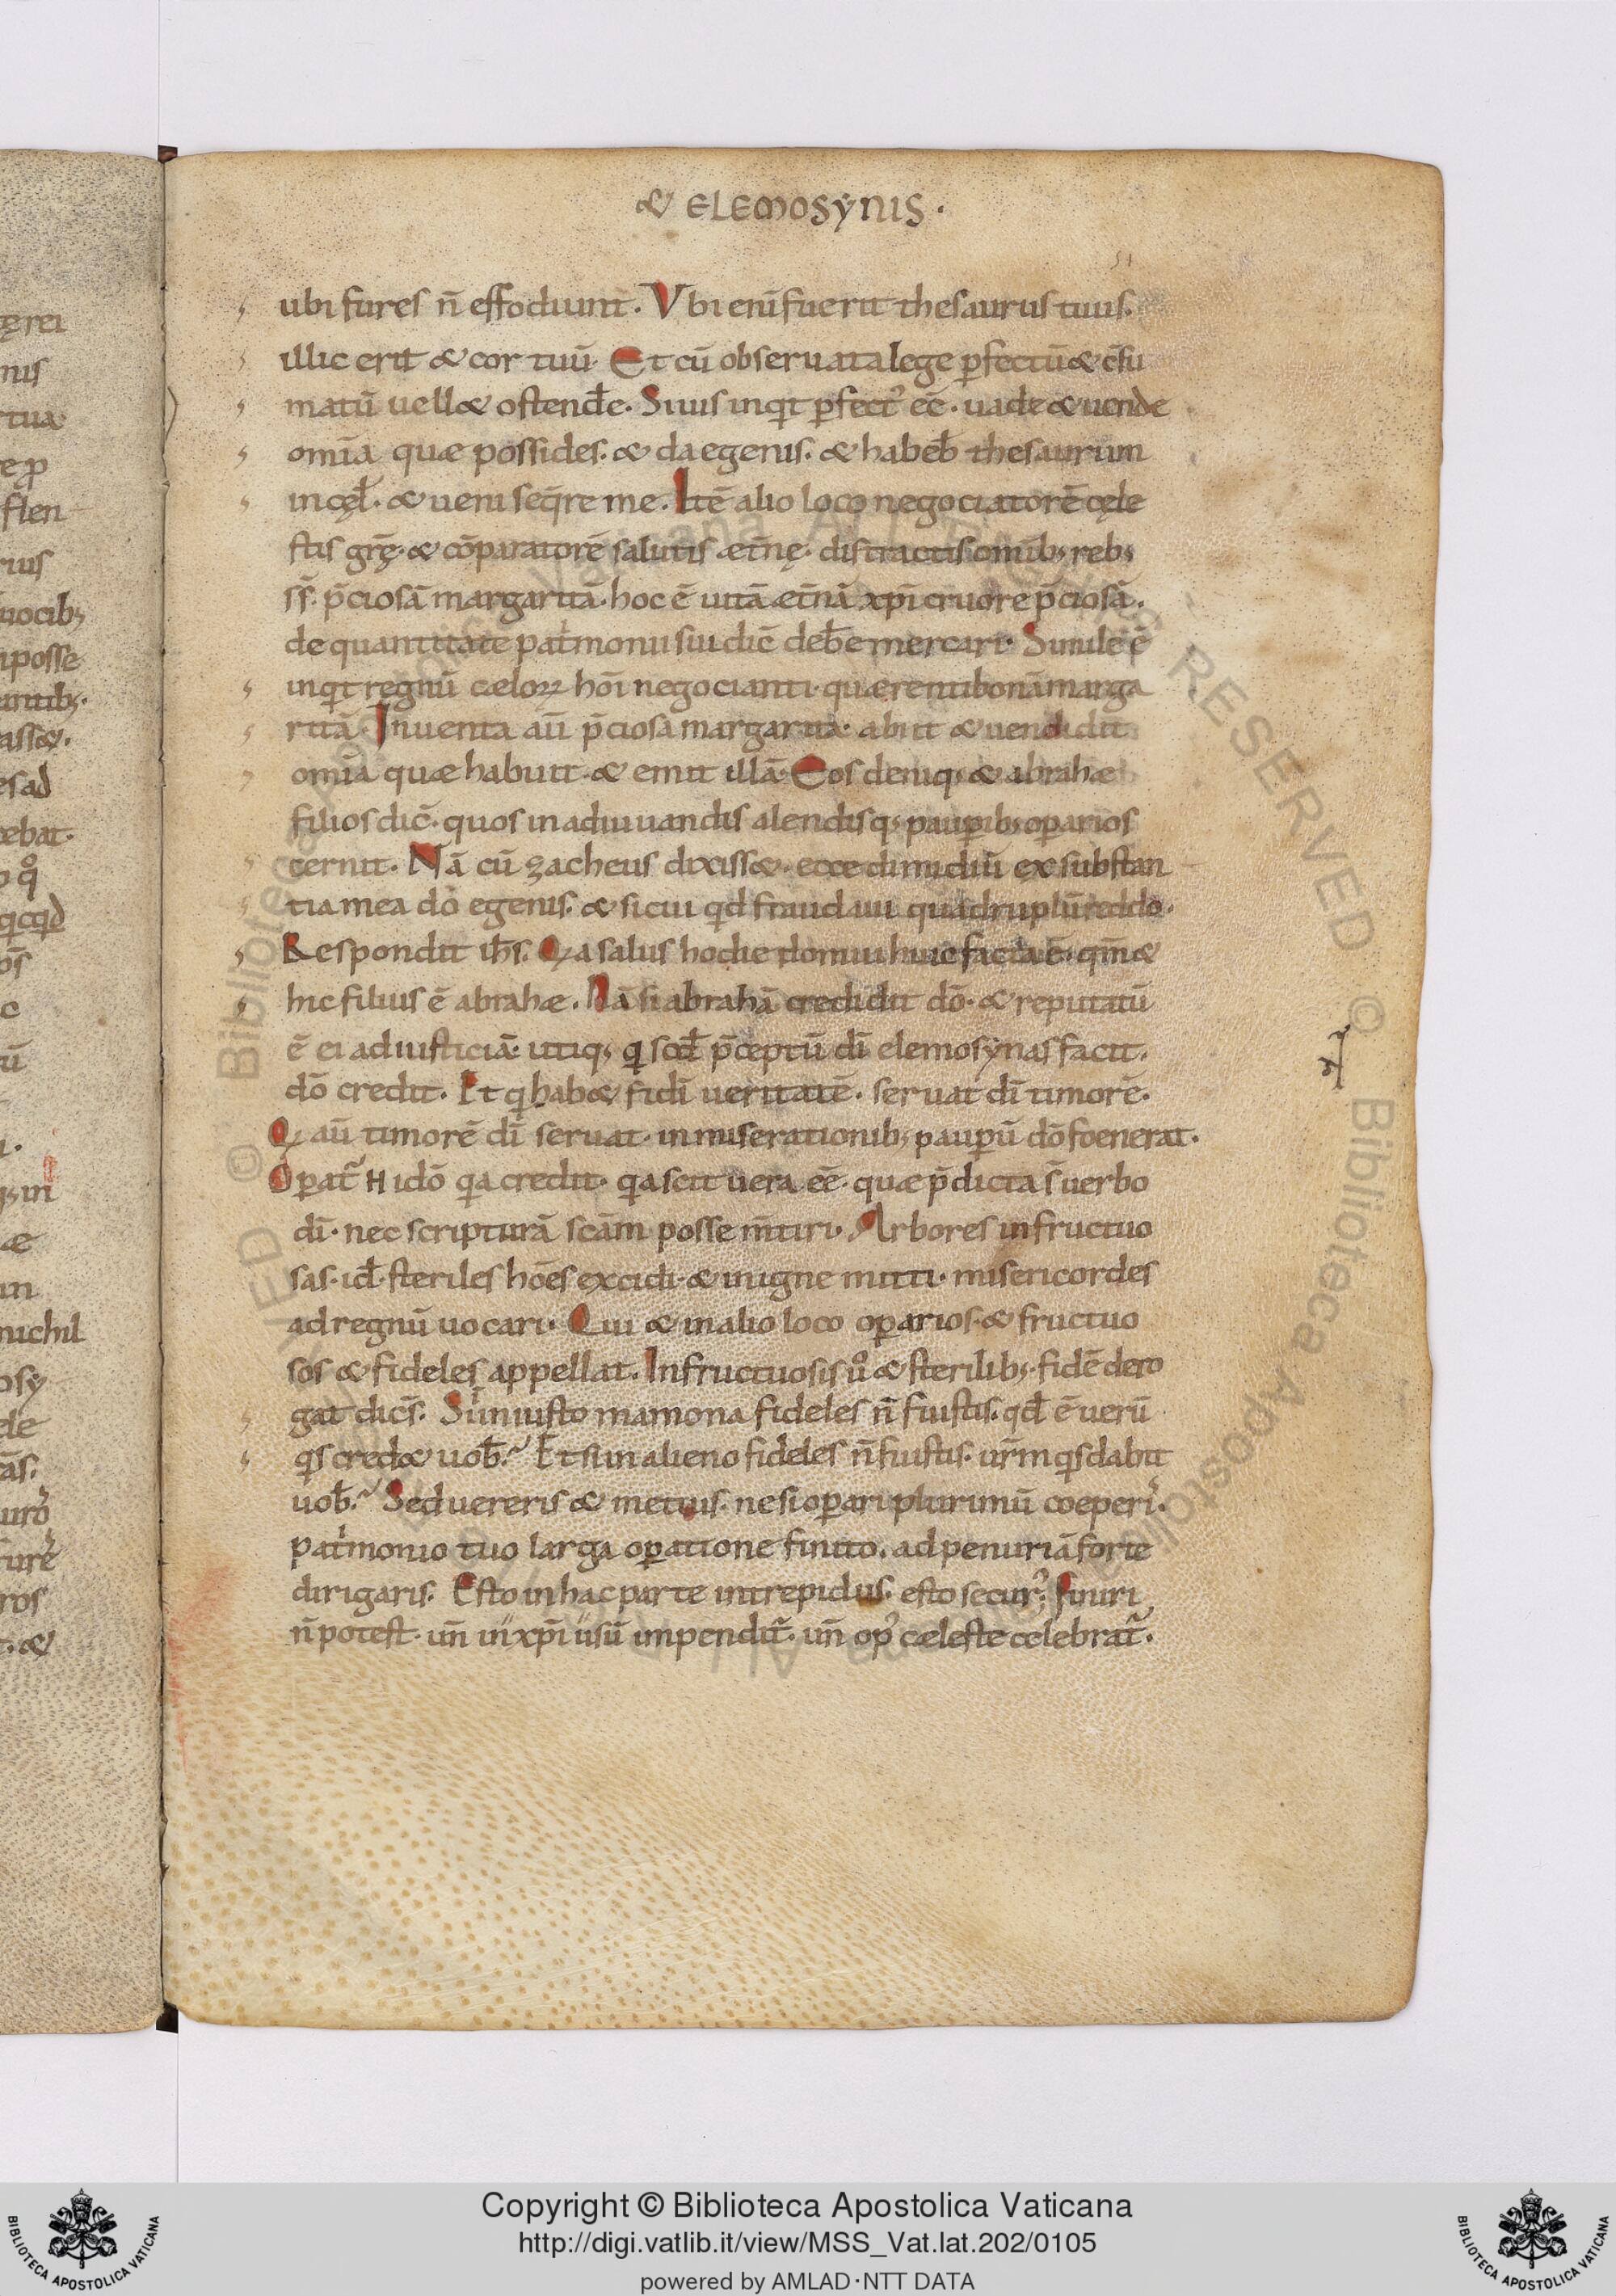 & ELEMOSYNIS.
51
ubi fures n̄ effodiunt. Vbi eni fuerit thesaurus tuus.
illic erit & cor tuū. Et cū obseruata lege ꝑfectū & c̄su
matū uell& ostend̄e. Si uis inqͥt ꝑfectꝰ eē. uade & uende
om̄ia quæ possides. & da egenis. & habeb̄ thesaurum
in cęł. & ueni seq̄re me. Itē alio loco negociatorē cęle
stis gr̄ę. & cōparatorē salutis æt̄nę. distractis omib; reb;
sf̄. p̄ciosā margaritā. hoc ē uitā æt̄nā xp̄i cruore p̄ciosā.
de quantitate patͥmonii sui dic̄ deb̄e mercari. Simile ē
inqͥt regnū cæloꝝ hoī negocianti. quærenti bonā marga
ritā. Inuenta aū p̄ciosa margarita. abiit & uendidit
omia quæ habuit. & emit illā. Eos deniq; & abrahæ
filios dic̄. quos in adiuuandis alendisq; pauꝑib; oꝑarios
cernit. Nā cū zacheus dixiss&. ecce dimidiū ex substan
tia mea dō egenis. & si cui qͥd fraudaui quadruplū reddo.
Respondit ih̄s. Qͥa salus hodie domui huic facta ē. qm̄ &
hic filius ē abrahæ. Nā si abrahā credidit dō. & reputatū
ē ei ad iusticiā. utiq; qͥ scd̄ p̄ceptū dī elemosynas facit.
dō credit. Et qͥ hab& fidī ueritatē. seruat dī timorē.
Qͥ aū timorē dī seruat. in miserationib; pauꝑū dō foenerat.
Oꝑat᷑ H idō qͥa credit. qͥa scit uera eē. quæ p̄dicta s̄ uerbo
dī. nec scripturā scām posse m̄tiri. Arbores infructuo
sas. id̄. steriles hōes excidi. & in igne mitti. misericordes
ad regnū uocari. Qui & in alio loco oꝑarios. & fructuo
sos & fideles appellat. Infructuosis ů & sterilib; fidē dero
gat dic̄s. Si in iusto mamona fideles n̄ fuistis. qd̄ ē uerū
qͥs cred& uob̄.? Et si in alieno fideles n̄ fuistis. ur̄m qͥs dabit
uob̄.? Sed uereris & metuis. ne si oꝑari plurimū coeperiˢ.
patͥmonio tuo larga oꝑatione finito. ad penuriā forte
dirigaris. Esto in hac parte intrepidus. esto securꝰ. Finiri
n̄ potest. un̄ in xp̄i usū impendit᷑. un̄ opꝰ cæleste celebrat᷑.
Copyright © Biblioteca Apostolica Vaticana
http://digi.vatlib.it/view/MSS_Vat.lat.202/0105
powered by AMLAD·NTT DATA
BIBLIOTECA APOSTOLICA VATICANA
BIBLIOTECA APOSTOLICA VATICANA